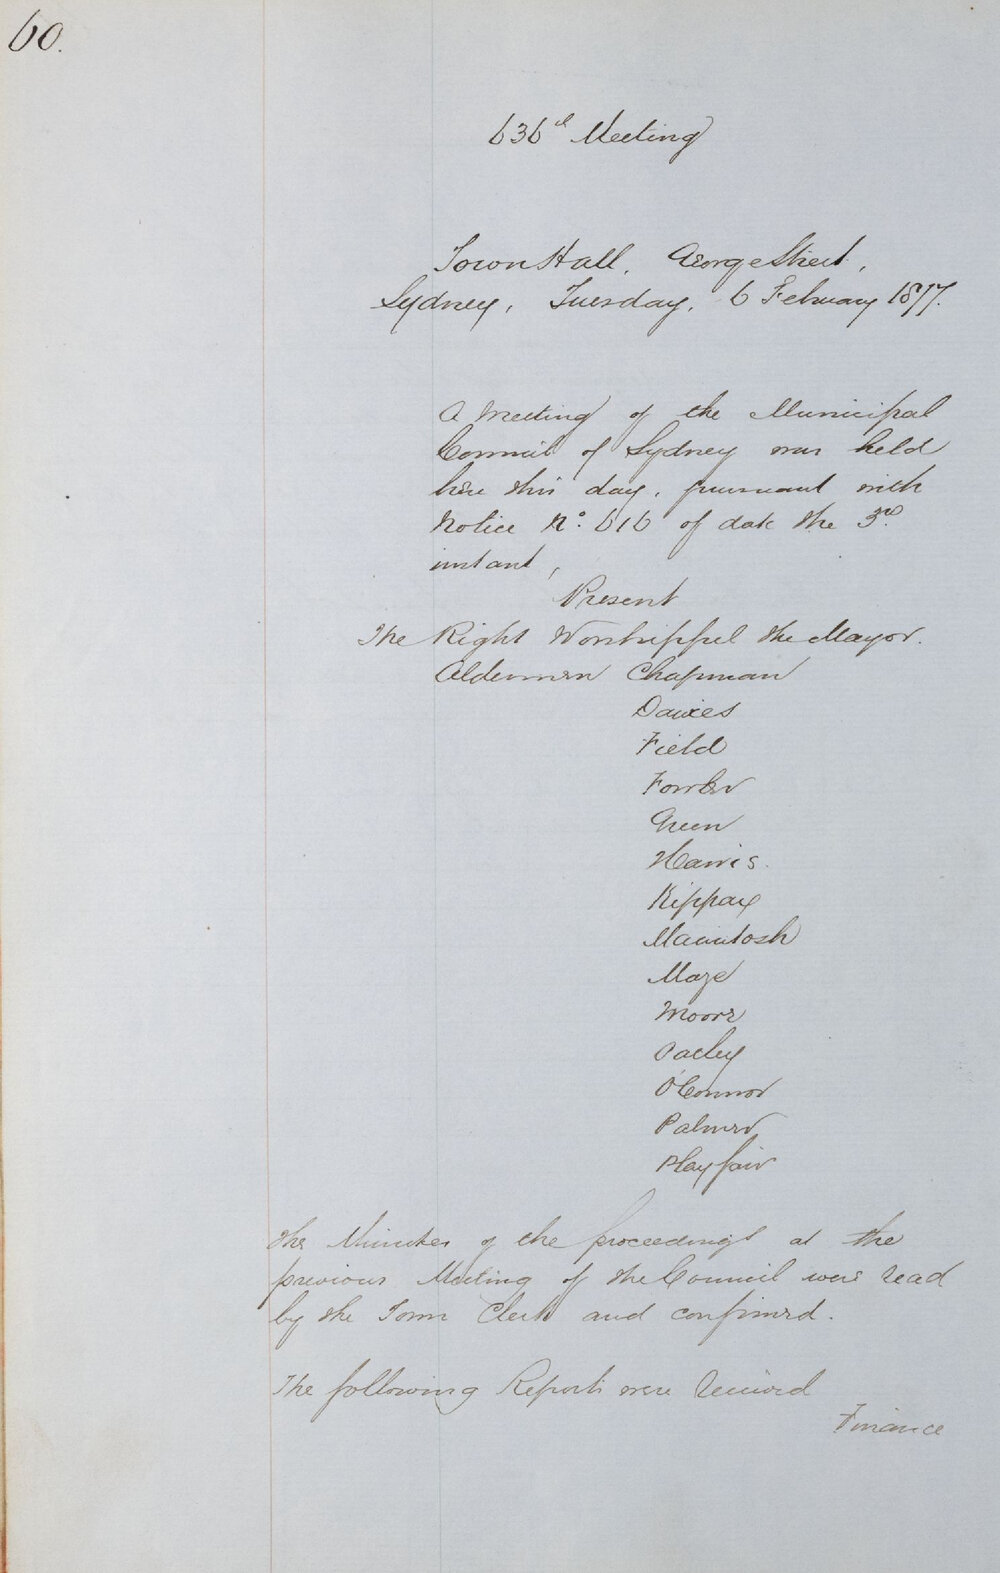 60.
636th Meeting
Town Hall, George Street,
Sydney, Tuesday, 6 February 1877.
A Meeting of the Municipal
Council of Sydney was held
here this day, pursuant with
Notice No. 616 of date the 3rd
instant,
Present
The Right Worshipful the Mayor.
Aldermen Chapman
Davies
Field
Fowler
Green
Harris.
Kippax
Macintosh
Maze
Moore
Oatley
O'Connor
Palmer
Playfair
The Minutes of the proceedings at the
previous Meeting of the Council were read
by the Town Clerk and confirmed.
The following Reports were received
Finance